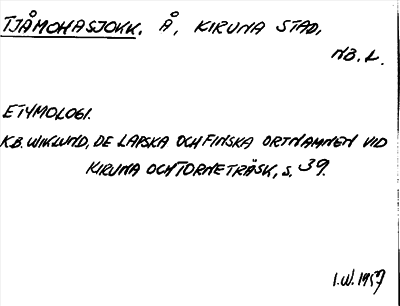 TJÅMOHASJOKK. Å, KIRUNA STAD,
NB. L.
ETYMOLOGI.
K.B. WIKLUND, DE LAPSKA OCH FINSKA ORTNAMNEN VID
KIRUNA OCH TORNETRÄSK, s. 39.
I.W. 1957